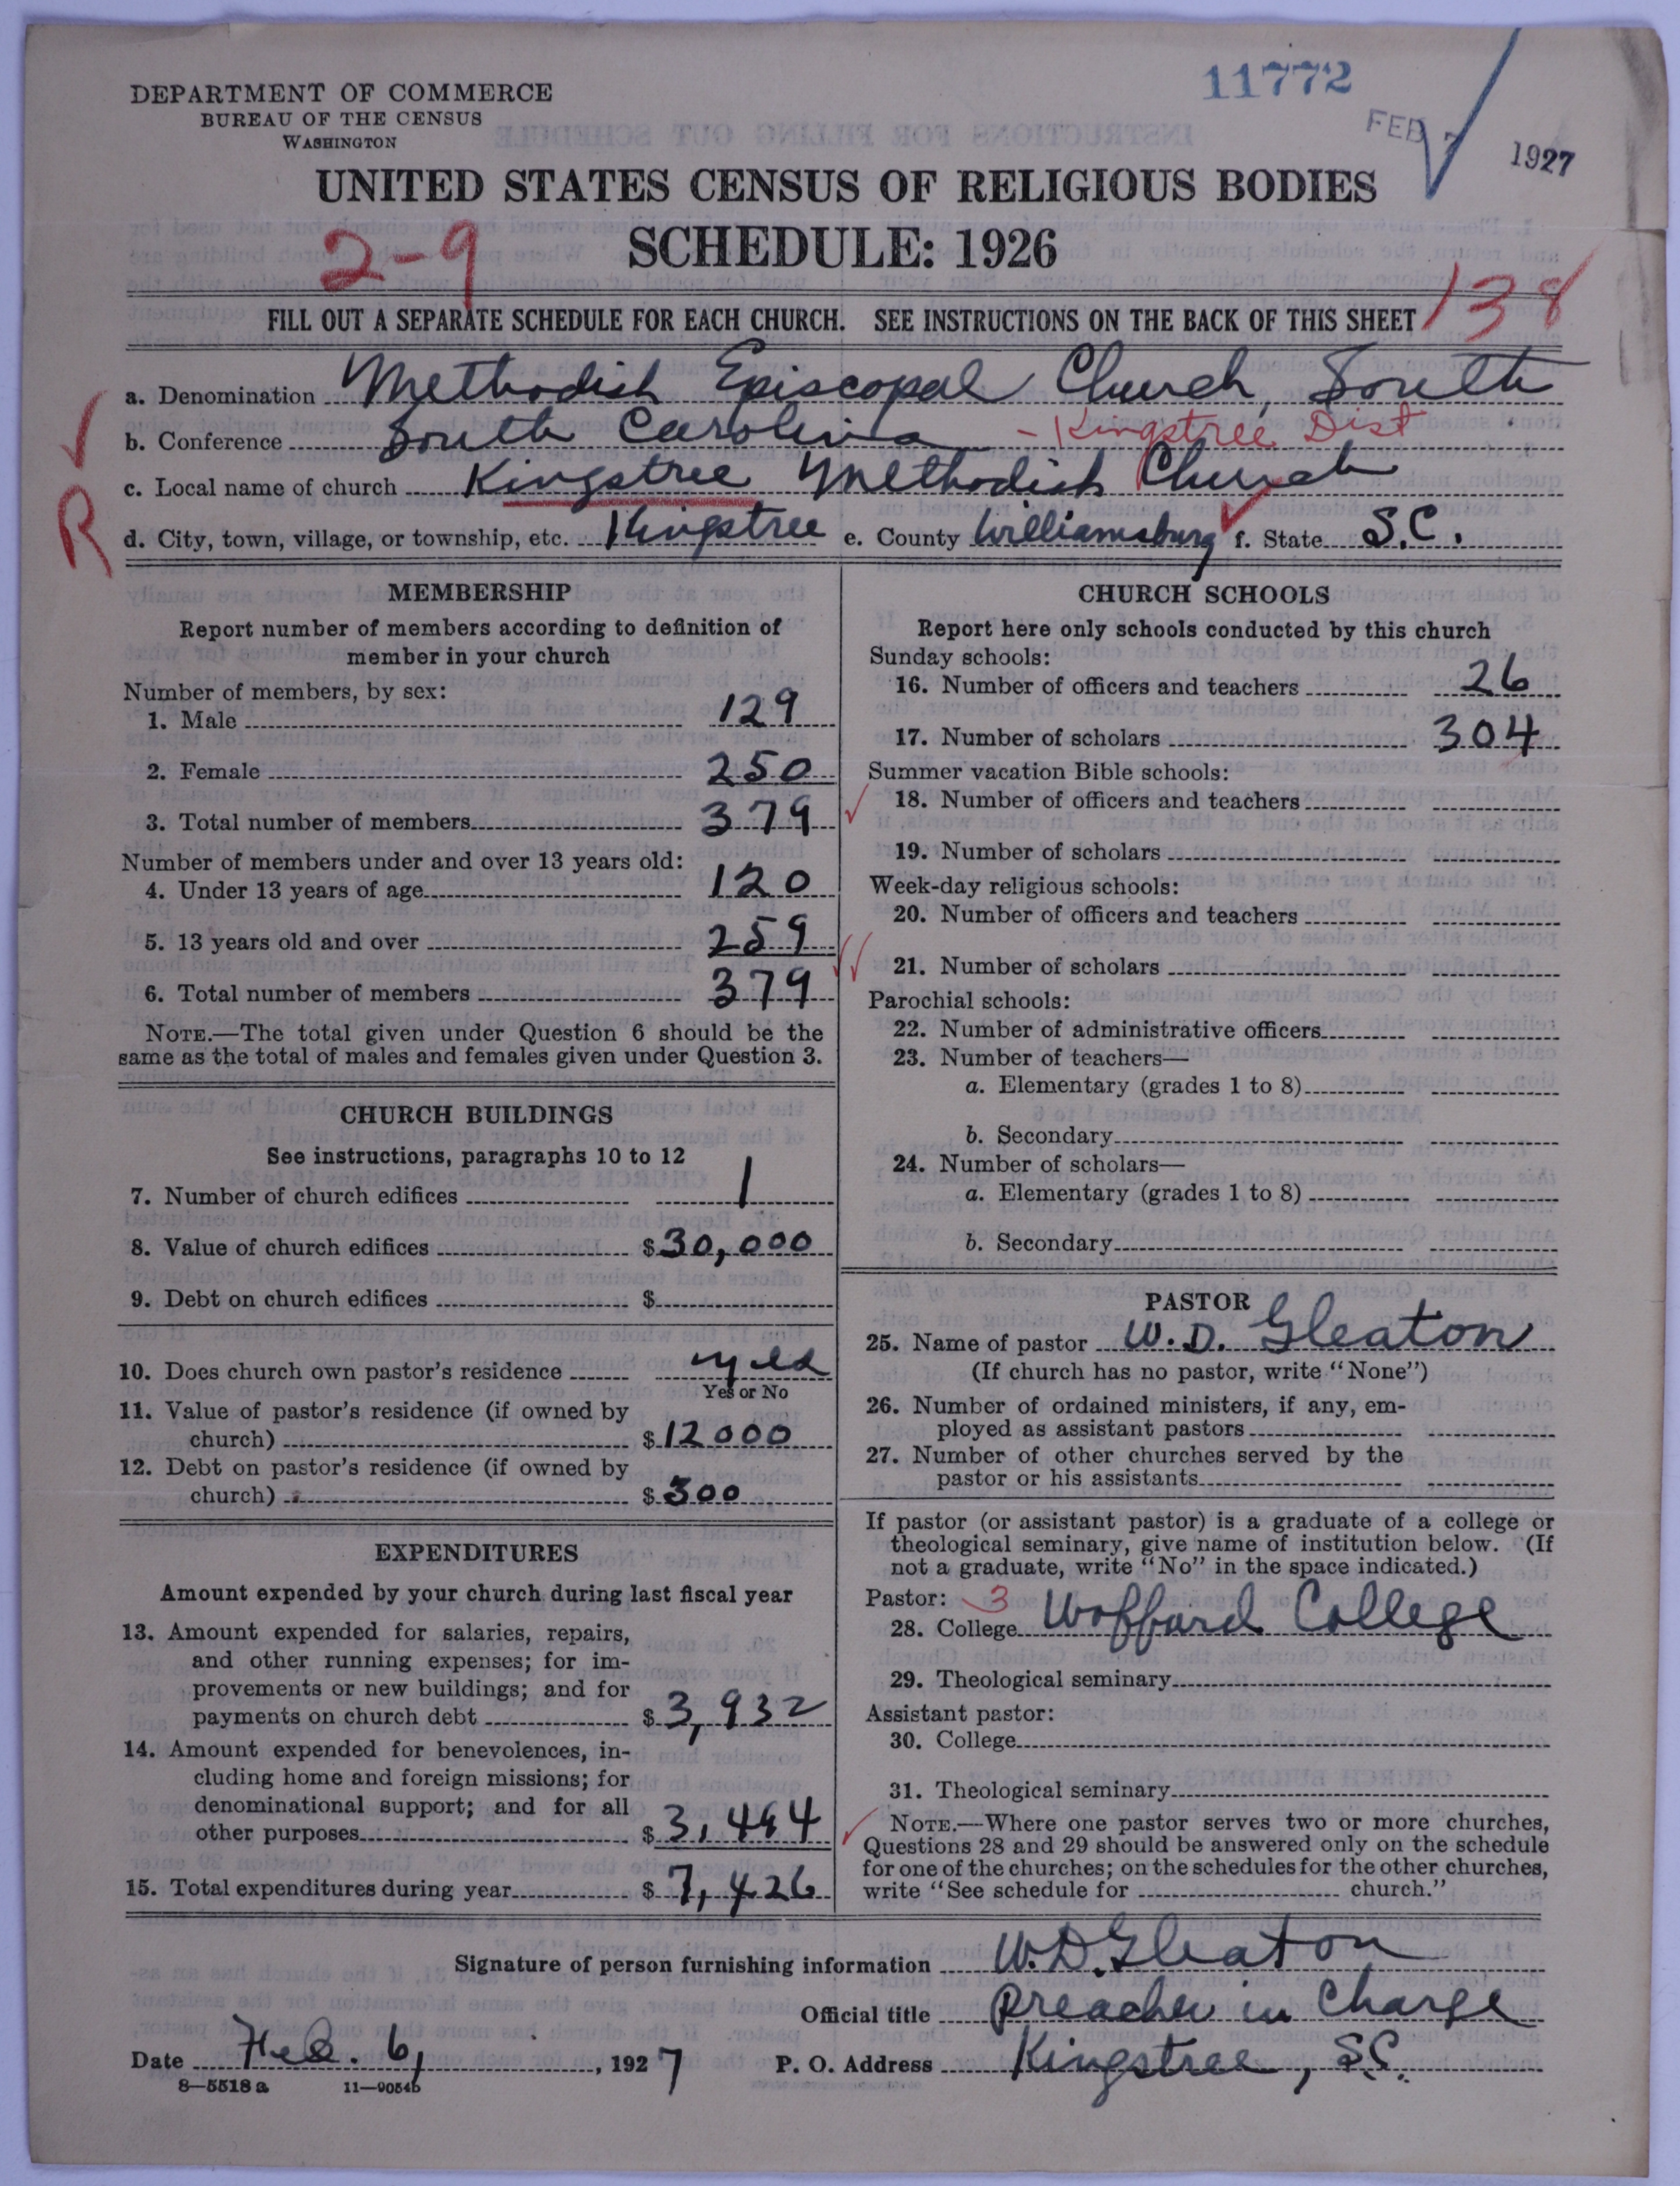 11772
FEB 7 1927
DEPARTMENT OF COMMERCE
BUREAU OF THE CENSUS
WASHINGTON
UNITED STATES CENSUS OF RELIGIOUS BODIES
2-9
SCHEDULE: 1926
138
FILL OUT A SEPARATE SCHEDULE FOR EACH CHURCH. SEE INSTRUCTIONS ON THE BACK OF THIS SHEET
a. Denomination Methodist Episcopal Church, South
b. Conference South Carolina - Kingstree Dist
c. Local name of church Kingstree Methodist Church
R
d. City, town, village, or township, etc. Kingstree e. County Williamsburg f. State S.C.
MEMBERSHIP
Report number of members according to definition of
member in your church
Number of members, by sex:
1. Male 129
2. Female 250
3. Total number of members 379
Number of members under and over 13 years old:
4. Under 13 years of age 120
5. 13 years old and over 259
6. Total number of members 379
NOTE.—The total given under Question 6 should be the
same as the total of males and females given under Question 3.
CHURCH BUILDINGS
See instructions, paragraphs 10 to 12
7. Number of church edifices 1
8. Value of church edifices $30,000
9. Debt on church edifices $
10. Does church own pastor's residence yes
Yes or No
11. Value of pastor's residence (if owned by
church) $12000
12. Debt on pastor's residence (if owned by
church) $300
EXPENDITURES
Amount expended by your church during last fiscal year
13. Amount expended for salaries, repairs,
and other running expenses; for im-
provements or new buildings; and for
payments on church debt $3,932
14. Amount expended for benevolences, in-
cluding home and foreign missions; for
denominational support; and for all
other purposes $3,494
15. Total expenditures during year $7,426
CHURCH SCHOOLS
Report here only schools conducted by this church
Sunday schools:
16. Number of officers and teachers 26
17. Number of scholars 304
Summer vacation Bible schools:
18. Number of officers and teachers
19. Number of scholars
Week-day religious schools:
20. Number of officers and teachers
21. Number of scholars
Parochial schools:
22. Number of administrative officers
23. Number of teachers—
a. Elementary (grades 1 to 8)
b. Secondary
24. Number of scholars—
a. Elementary (grades 1 to 8)
b. Secondary
PASTOR
25. Name of pastor W. D. Gleaton
(If church has no pastor, write "None")
26. Number of ordained ministers, if any, em-
ployed as assistant pastors
27. Number of other churches served by the
pastor or his assistants
If pastor (or assistant pastor) is a graduate of a college or
theological seminary, give name of institution below. (If
not a graduate, write "No" in the space indicated.)
Pastor: 3
28. College Wofford College
29. Theological seminary
Assistant pastor:
30. College
31. Theological seminary
NOTE.—Where one pastor serves two or more churches,
Questions 28 and 29 should be answered only on the schedule
for one of the churches; on the schedules for the other churches,
write "See schedule for church."
Signature of person furnishing information W. D. Gleaton
Official title Preacher in Charge
Date Feb. 6, 1927 P. O. Address Kingstree, S.C.
8—5518 a 11—9054b